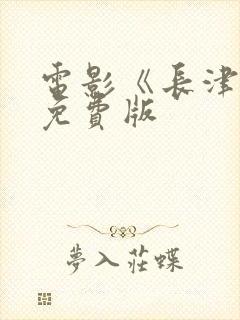 電影《長津
免費版
夢入莊蝶